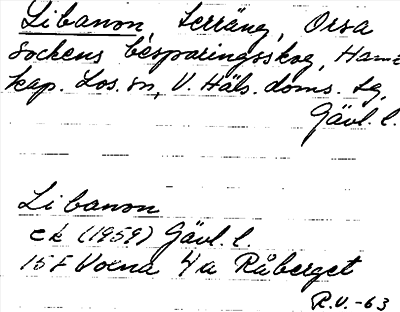 Libanon, terräng, Orsa
sockens besparingsskog, Hamra
kap. Los. sn, V. Häls. doms. sg,
Gävl. l.
Libanon
ek (1959) Gävl. l.
15F Voxna 4a Råberget
R.V.-63